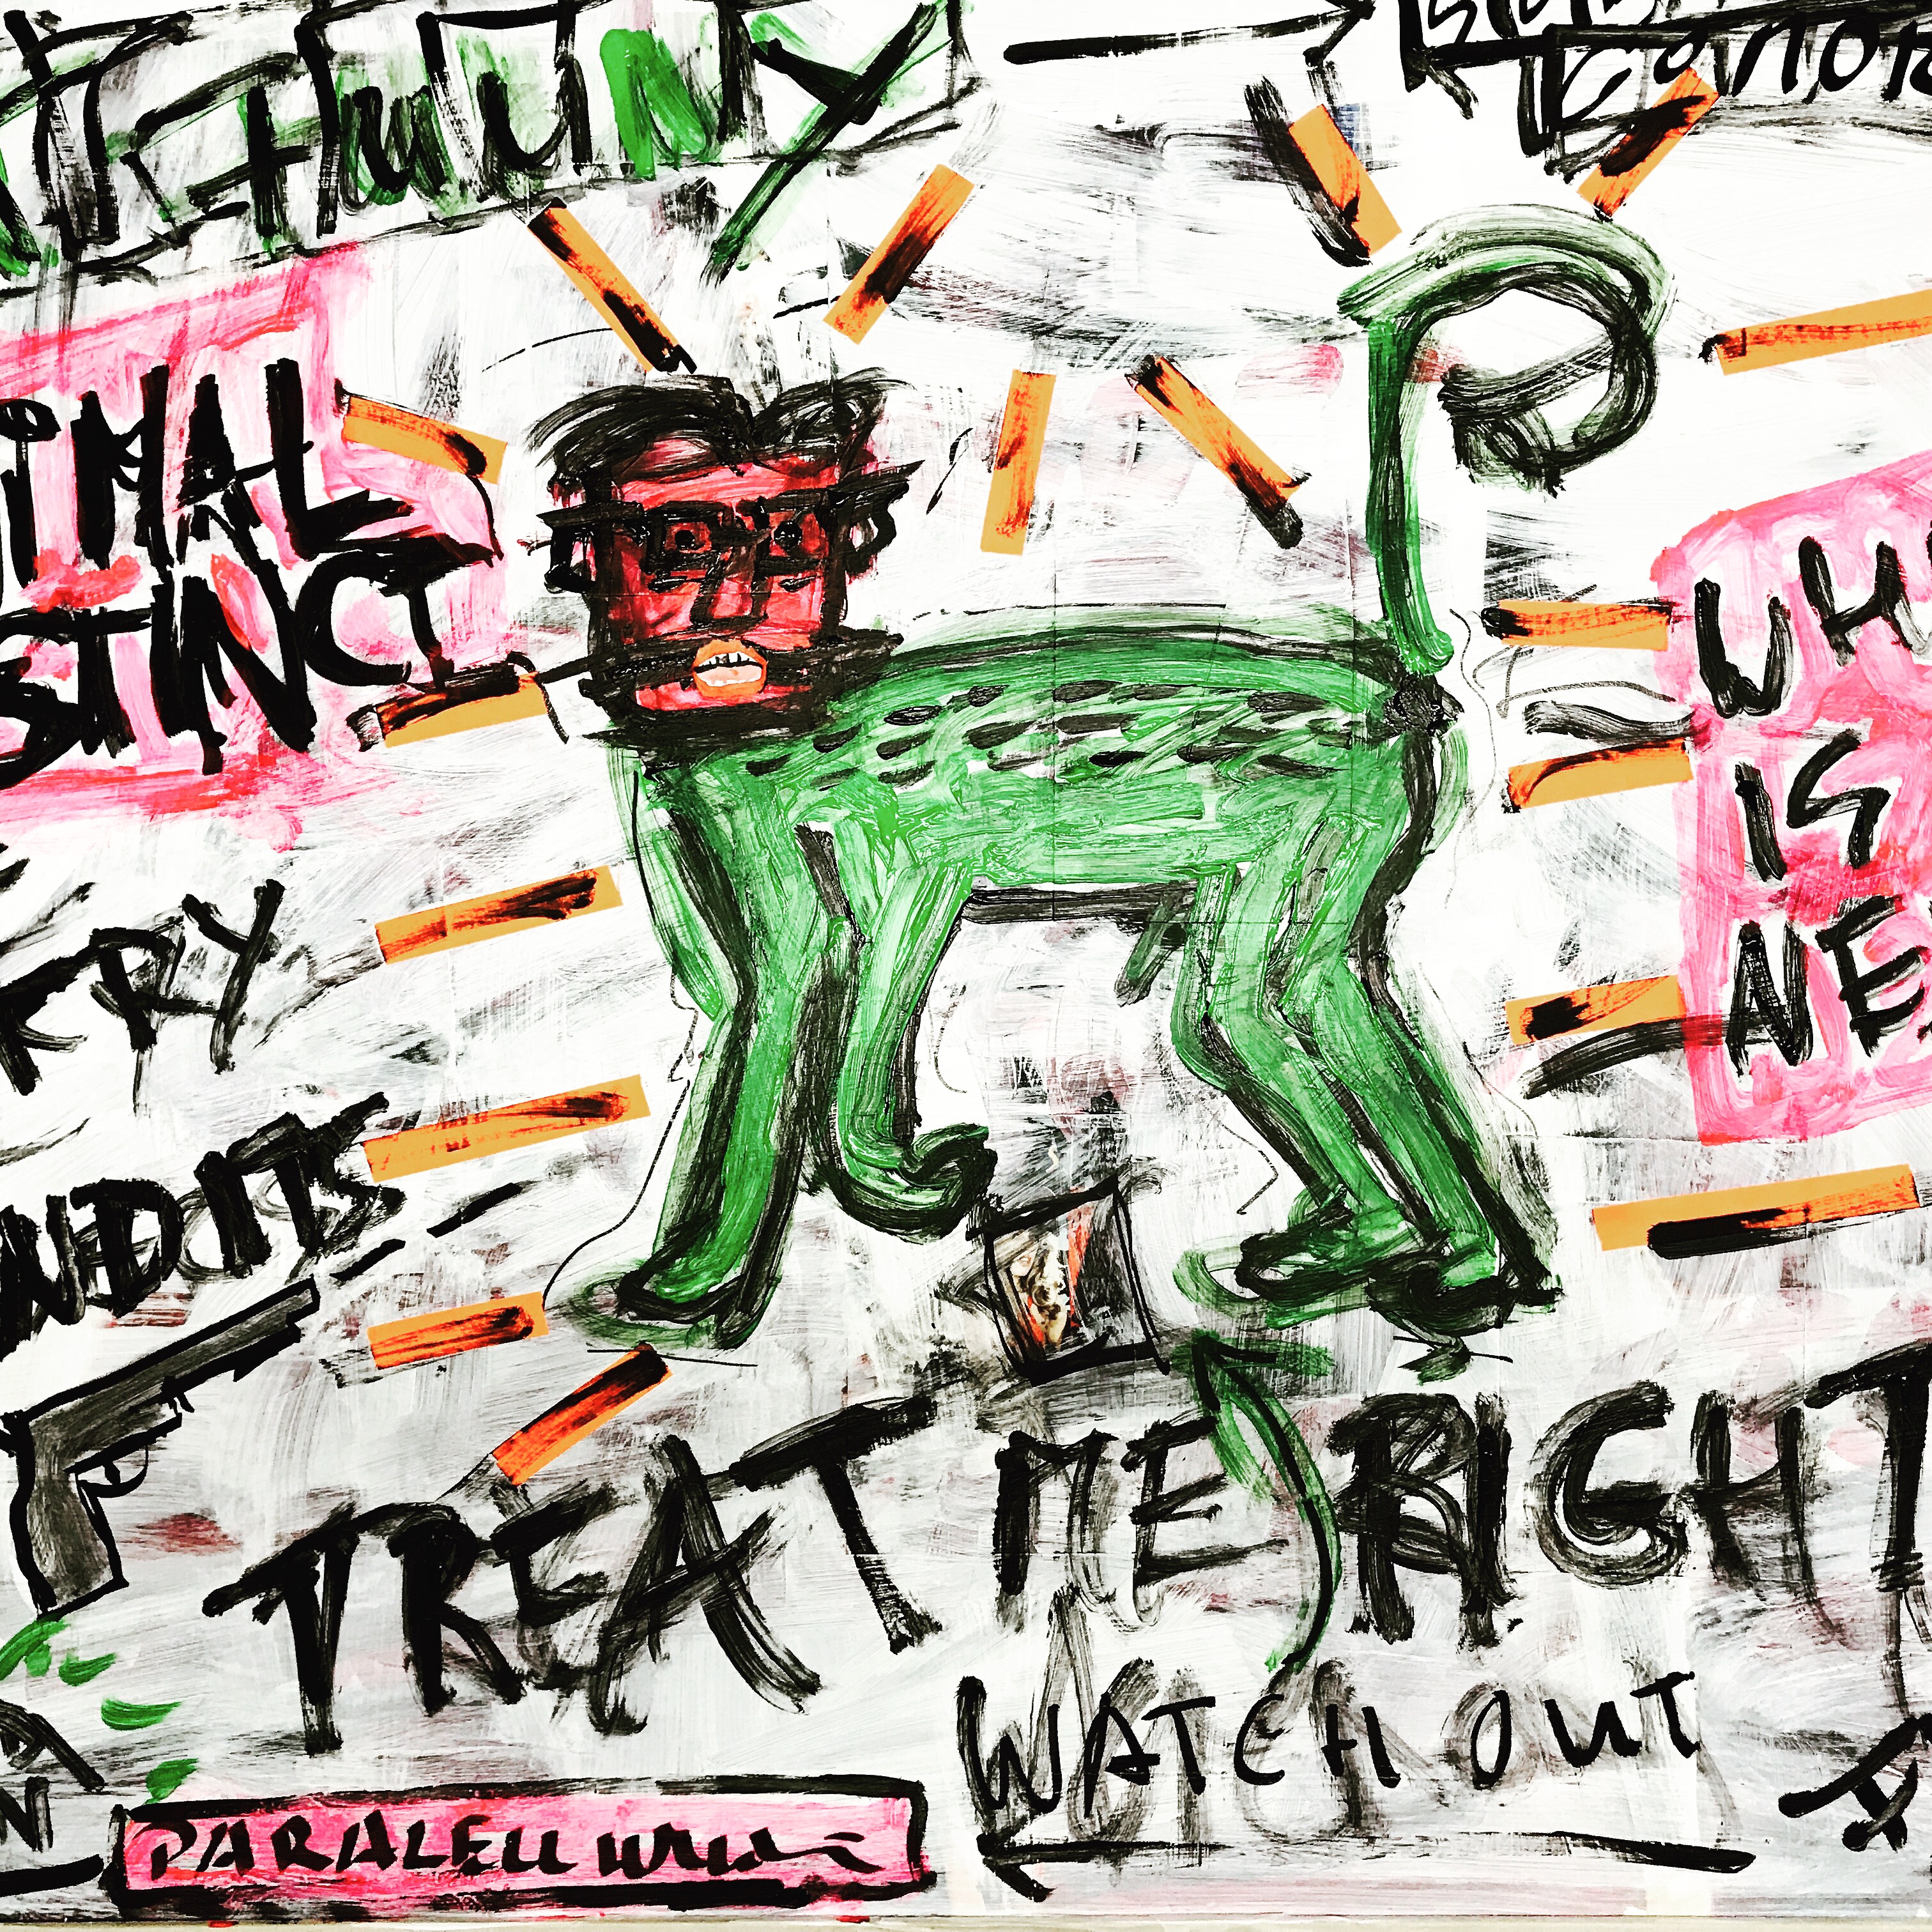 FUNNY
IMAL
STINCT
WH
IS
NE
RY
NDITS
TREAT ME RIGHT
WATCH OUT
PARALELL